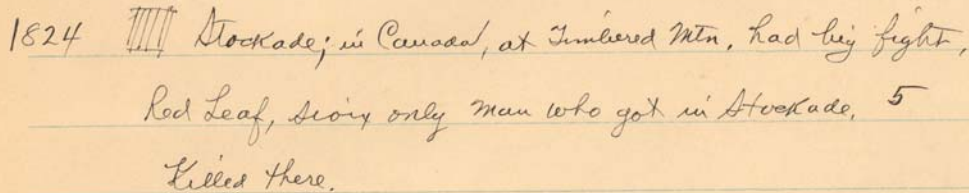 1824 Stockade; in Canada, at Timbered Mtn, had big fight,
Red Leaf, Sioux only man who got in Stockade. 5
Killed there.